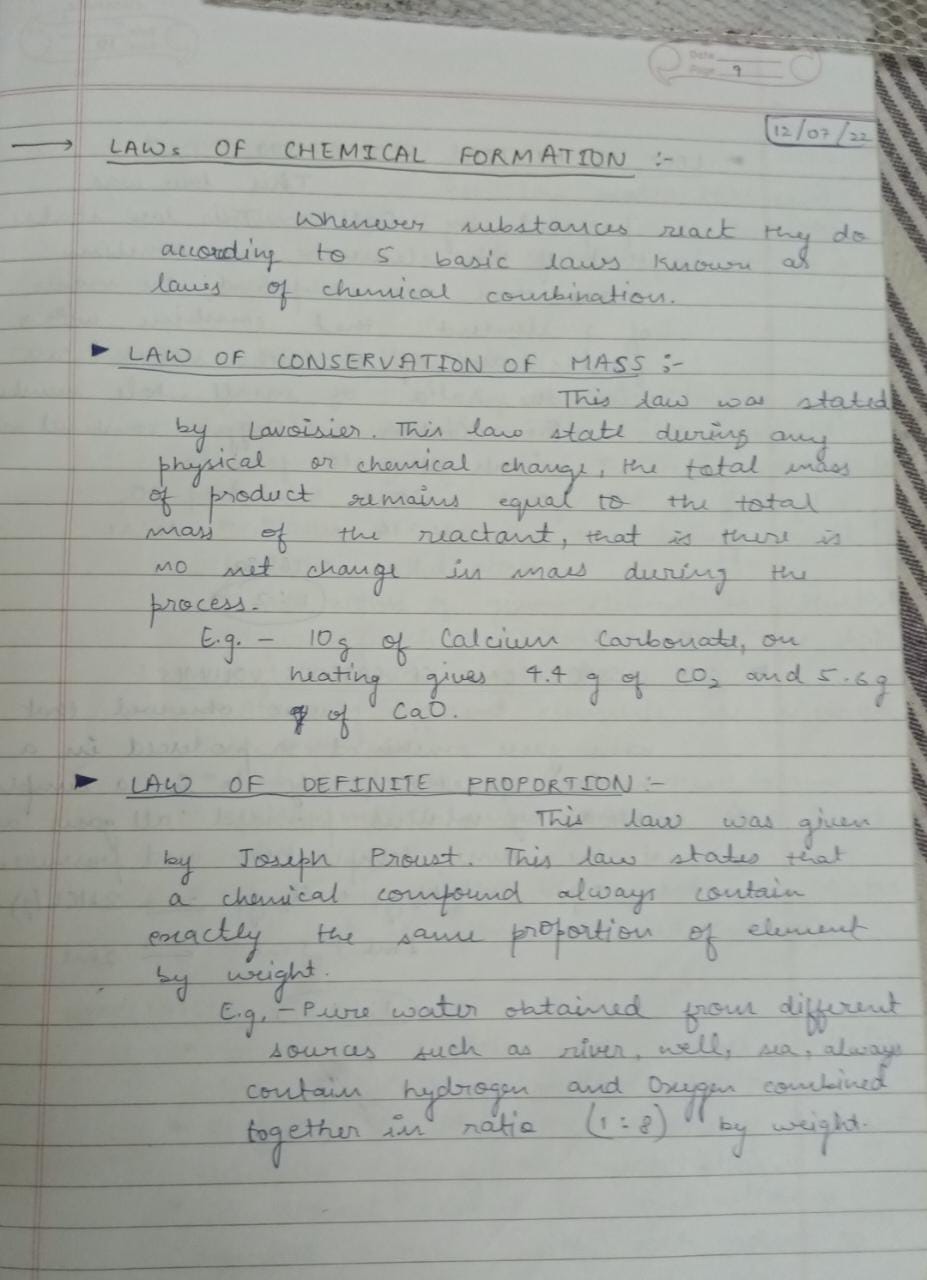 Date
Page 9
12/07/22
→ LAWs OF CHEMICAL FORMATION :-
Whenever substances react they do
according to 5 basic laws known as
laws of chemical combination.
► LAW OF CONSERVATION OF MASS :-
This law was stated
by Lavoisier. This law state during any
physical or chemical change, the total mass
of product remains equal to the total
mass of the reactant, that is there is
no net change in mass during the
process.
E.g. - 10g of Calcium Carbonate, on
heating gives 4.4 g of CO₂ and 5.6g
of CaO.
► LAW OF DEFINITE PROPORTION :-
This law was given
by Joseph Proust. This law states that
a chemical compound always contain
exactly the same proportion of element
by weight.
E.g. - Pure water obtained from different
sources such as river, well, sea, always
contain hydrogen and Oxygen combined
together in ratio (1:8) by weight.